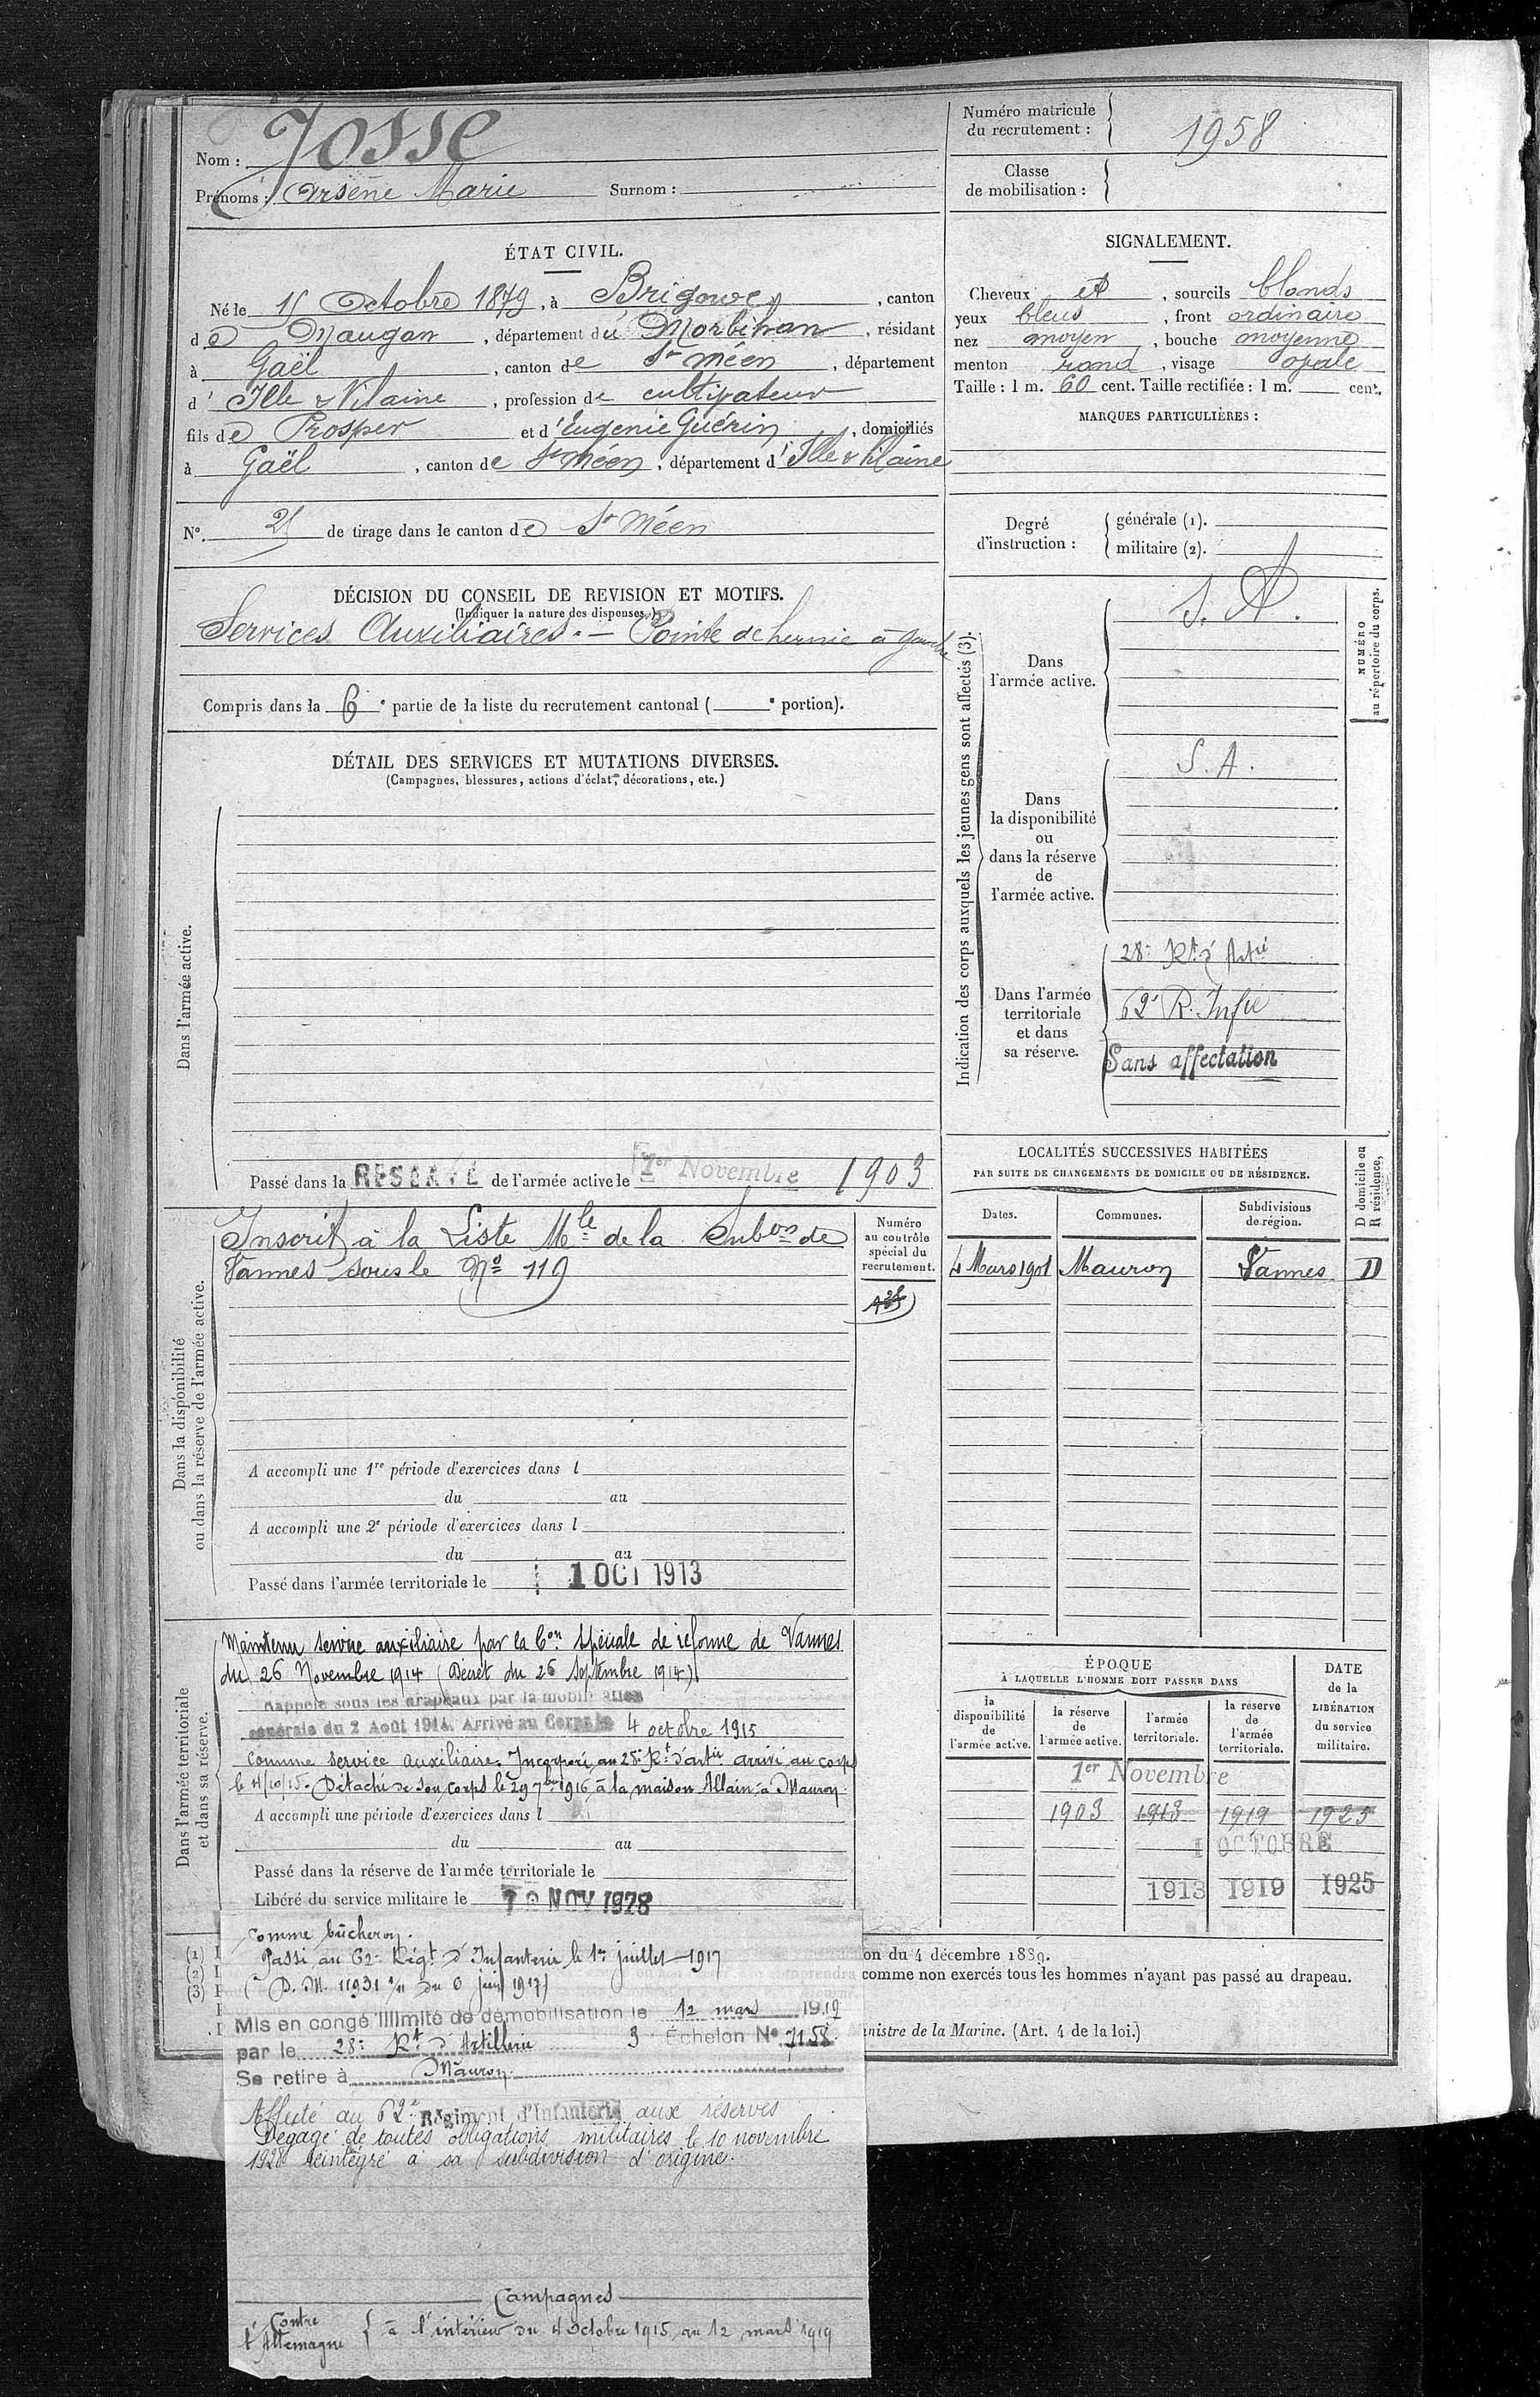 Nom : Josse
Prénoms : Arsène Marie Surnom :
Numéro matricule
du recrutement : 1958
Classe
de mobilisation :
ÉTAT CIVIL.
Né le 15 Octobre 1879, à Brignac, canton
de Mauron, département du Morbihan, résidant
à Gaël, canton de St Méen, département
d'Ille & Vilaine, profession de cultivateur
fils de Prosper et d'Eugénie Guérin, domiciliés
à Gaël, canton de St Méen, département d'Ille & Vilaine
N°. 25 de tirage dans le canton de St Méen
SIGNALEMENT.
Cheveux et, sourcils blonds
yeux bleus, front ordinaire
nez moyen, bouche moyenne
menton rond, visage ovale
Taille : 1 m. 60 cent. Taille rectifiée : 1 m. cent.
MARQUES PARTICULIÈRES :
Degré
d'instruction :
générale (1).
militaire (2).
DÉCISION DU CONSEIL DE REVISION ET MOTIFS.
(Indiquer la nature des dispenses.)
Services Auxiliaires. — Pointe de hernie à gauche
Compris dans la 6e partie de la liste du recrutement cantonal ( e portion).
DÉTAIL DES SERVICES ET MUTATIONS DIVERSES.
(Campagnes, blessures, actions d'éclat, décorations, etc.)
Dans l'armée active.
Passé dans la RESERVE de l'armée active le 1er Novembre 1903
Indication des corps auxquels les jeunes gens sont affectés (3).
Dans
l'armée active.
S. A.
NUMÉRO
au répertoire du corps.
Dans
la disponibilité
ou
dans la réserve
de
l'armée active.
S. A.
Dans l'armée
territoriale
et dans
sa réserve.
28e Rt d'Artie
62e R. Infie
Sans affectation
Dans la disponibilité
ou dans la réserve de l'armée active.
Inscrit à la Liste Mle de la Subon de
Vannes sous le No 119
Numéro
au contrôle
spécial du
recrutement.
A accompli une 1re période d'exercices dans l
du au
A accompli une 2e période d'exercices dans l
du au
Passé dans l'armée territoriale le 1 OCT 1913
LOCALITÉS SUCCESSIVES HABITÉES
PAR SUITE DE CHANGEMENTS DE DOMICILE OU DE RÉSIDENCE.
Dates. Communes. Subdivisions
de région.
D domicile ou
R résidence.
4 Mars 1901 Mauron Vannes D
Dans l'armée territoriale
et dans sa réserve.
Maintenu service auxiliaire par la Con spéciale de réforme de Vannes
du 26 Novembre 1914 (Décret du 26 Septembre 1914)
Rappelé sous les drapeaux par la mobilisation
générale du 2 Août 1914. Arrivé au Corps le 4 octobre 1915
comme service auxiliaire. Incorporé au 28e Rt d'artie arrivé au corps
le 4/10/15. Détaché de son corps le 29 7bre 1916 à la maison Allain à Mauron
A accompli une période d'exercices dans l
du au
Passé dans la réserve de l'armée territoriale le
Libéré du service militaire le 10 NOV 1928
ÉPOQUE
À LAQUELLE L'HOMME DOIT PASSER DANS
la
disponibilité
de
l'armée active.
la réserve
de
l'armée active.
l'armée
territoriale.
la réserve
de
l'armée
territoriale.
DATE
de la
LIBÉRATION
du service
militaire.
1er Novembre
1903 1913 1919 1925
1 OCTOBRE
1913 1919 1925
(1)
(2)
(3)
on du 4 décembre 1889.
comme non exercés tous les hommes n'ayant pas passé au drapeau.
inistre de la Marine. (Art. 4 de la loi.)
comme bûcheron.
Passé au 62e Régt d'Infanterie le 1er juillet 1917
Mis en congé illimité de démobilisation le 12 mars 1919
par le 28e Rt d'Artillerie 3 Echelon No 7158
Se retire à Mauron
Affecté au 62e Régiment d'Infanterie aux réserves
Dégagé de toutes obligations militaires le 10 novembre
1928 réintégré à sa subdivision d'origine.
Campagnes
Contre
l'Allemagne
à l'intérieur du 4 Octobre 1915 au 12 mars 1919